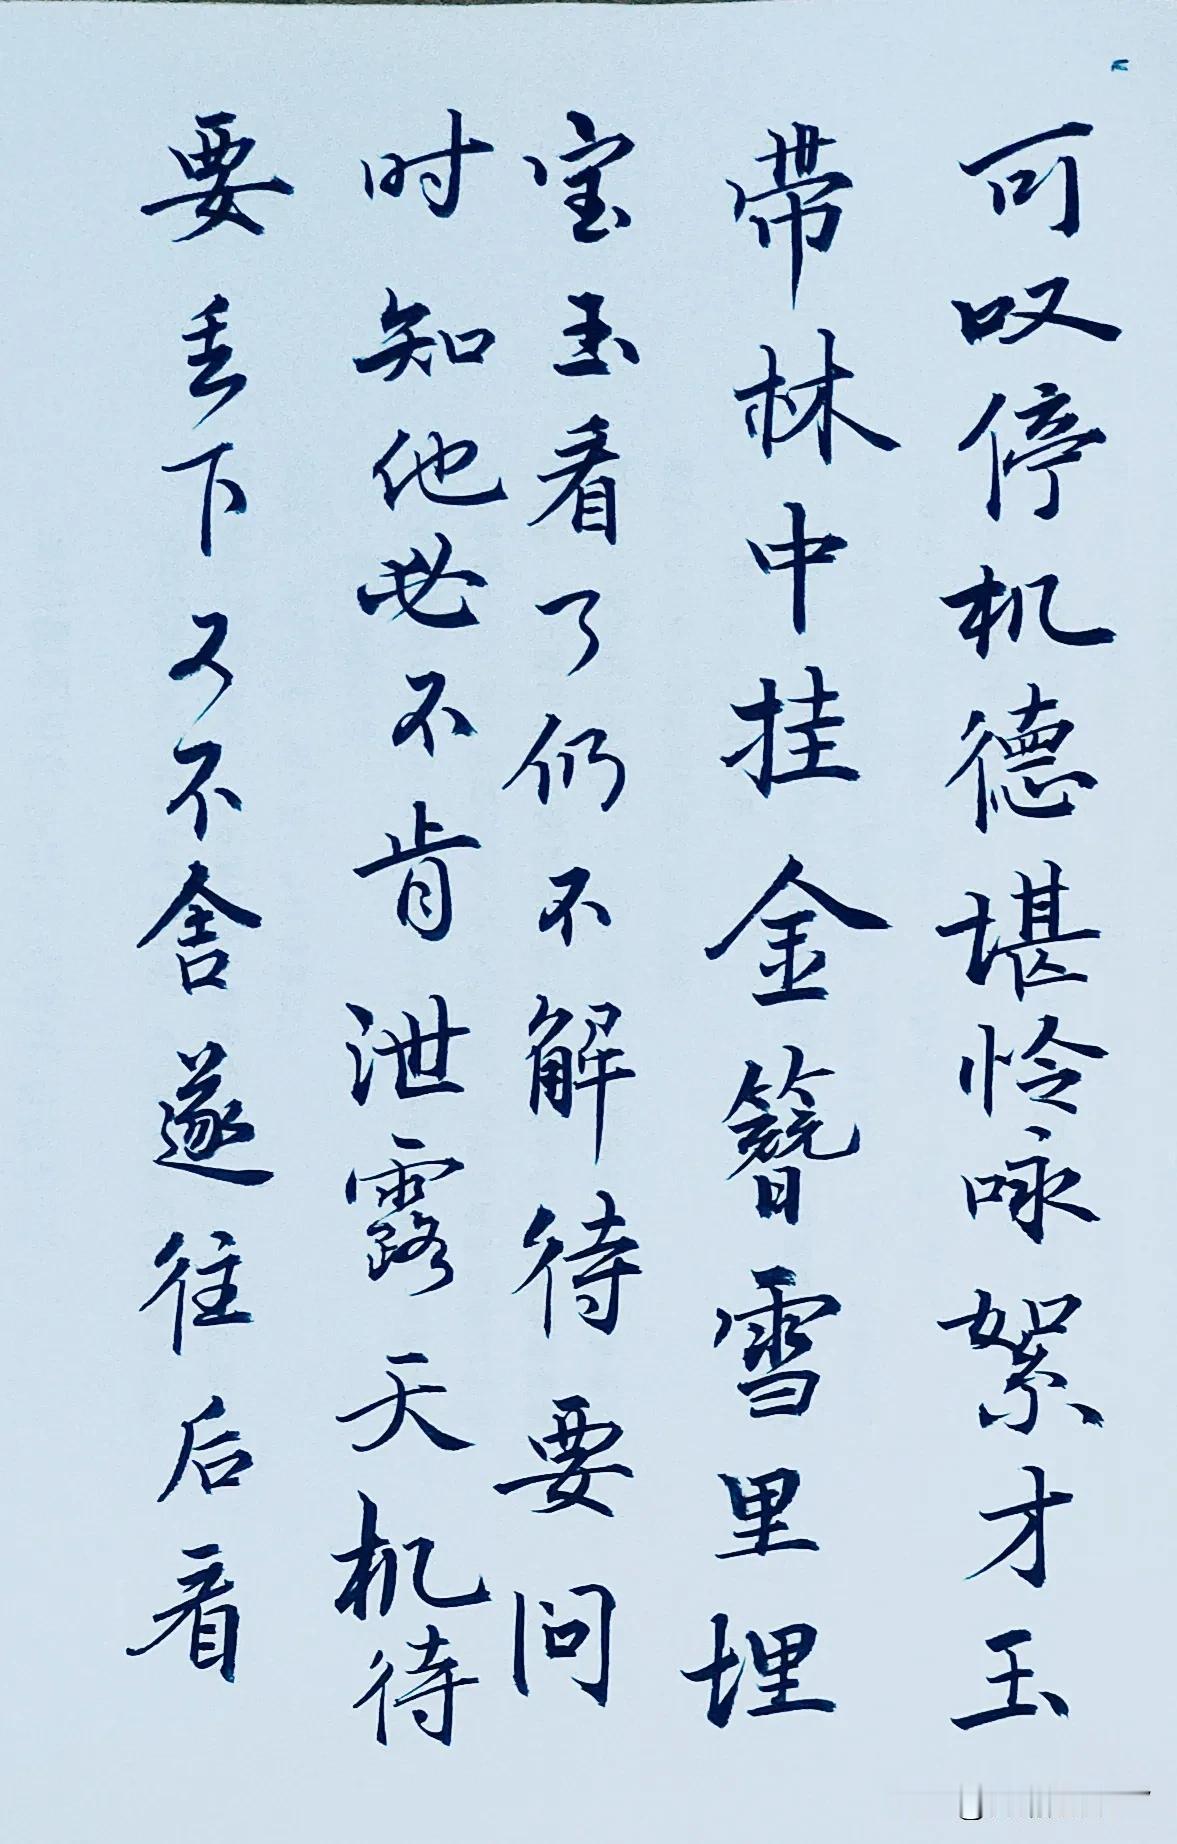 可叹停机德堪怜咏絮才玉
带林中挂金簪雪里埋
宝玉看了仍不解待要问
时知他必不肯泄露天机待
要丢下又不舍遂往后看